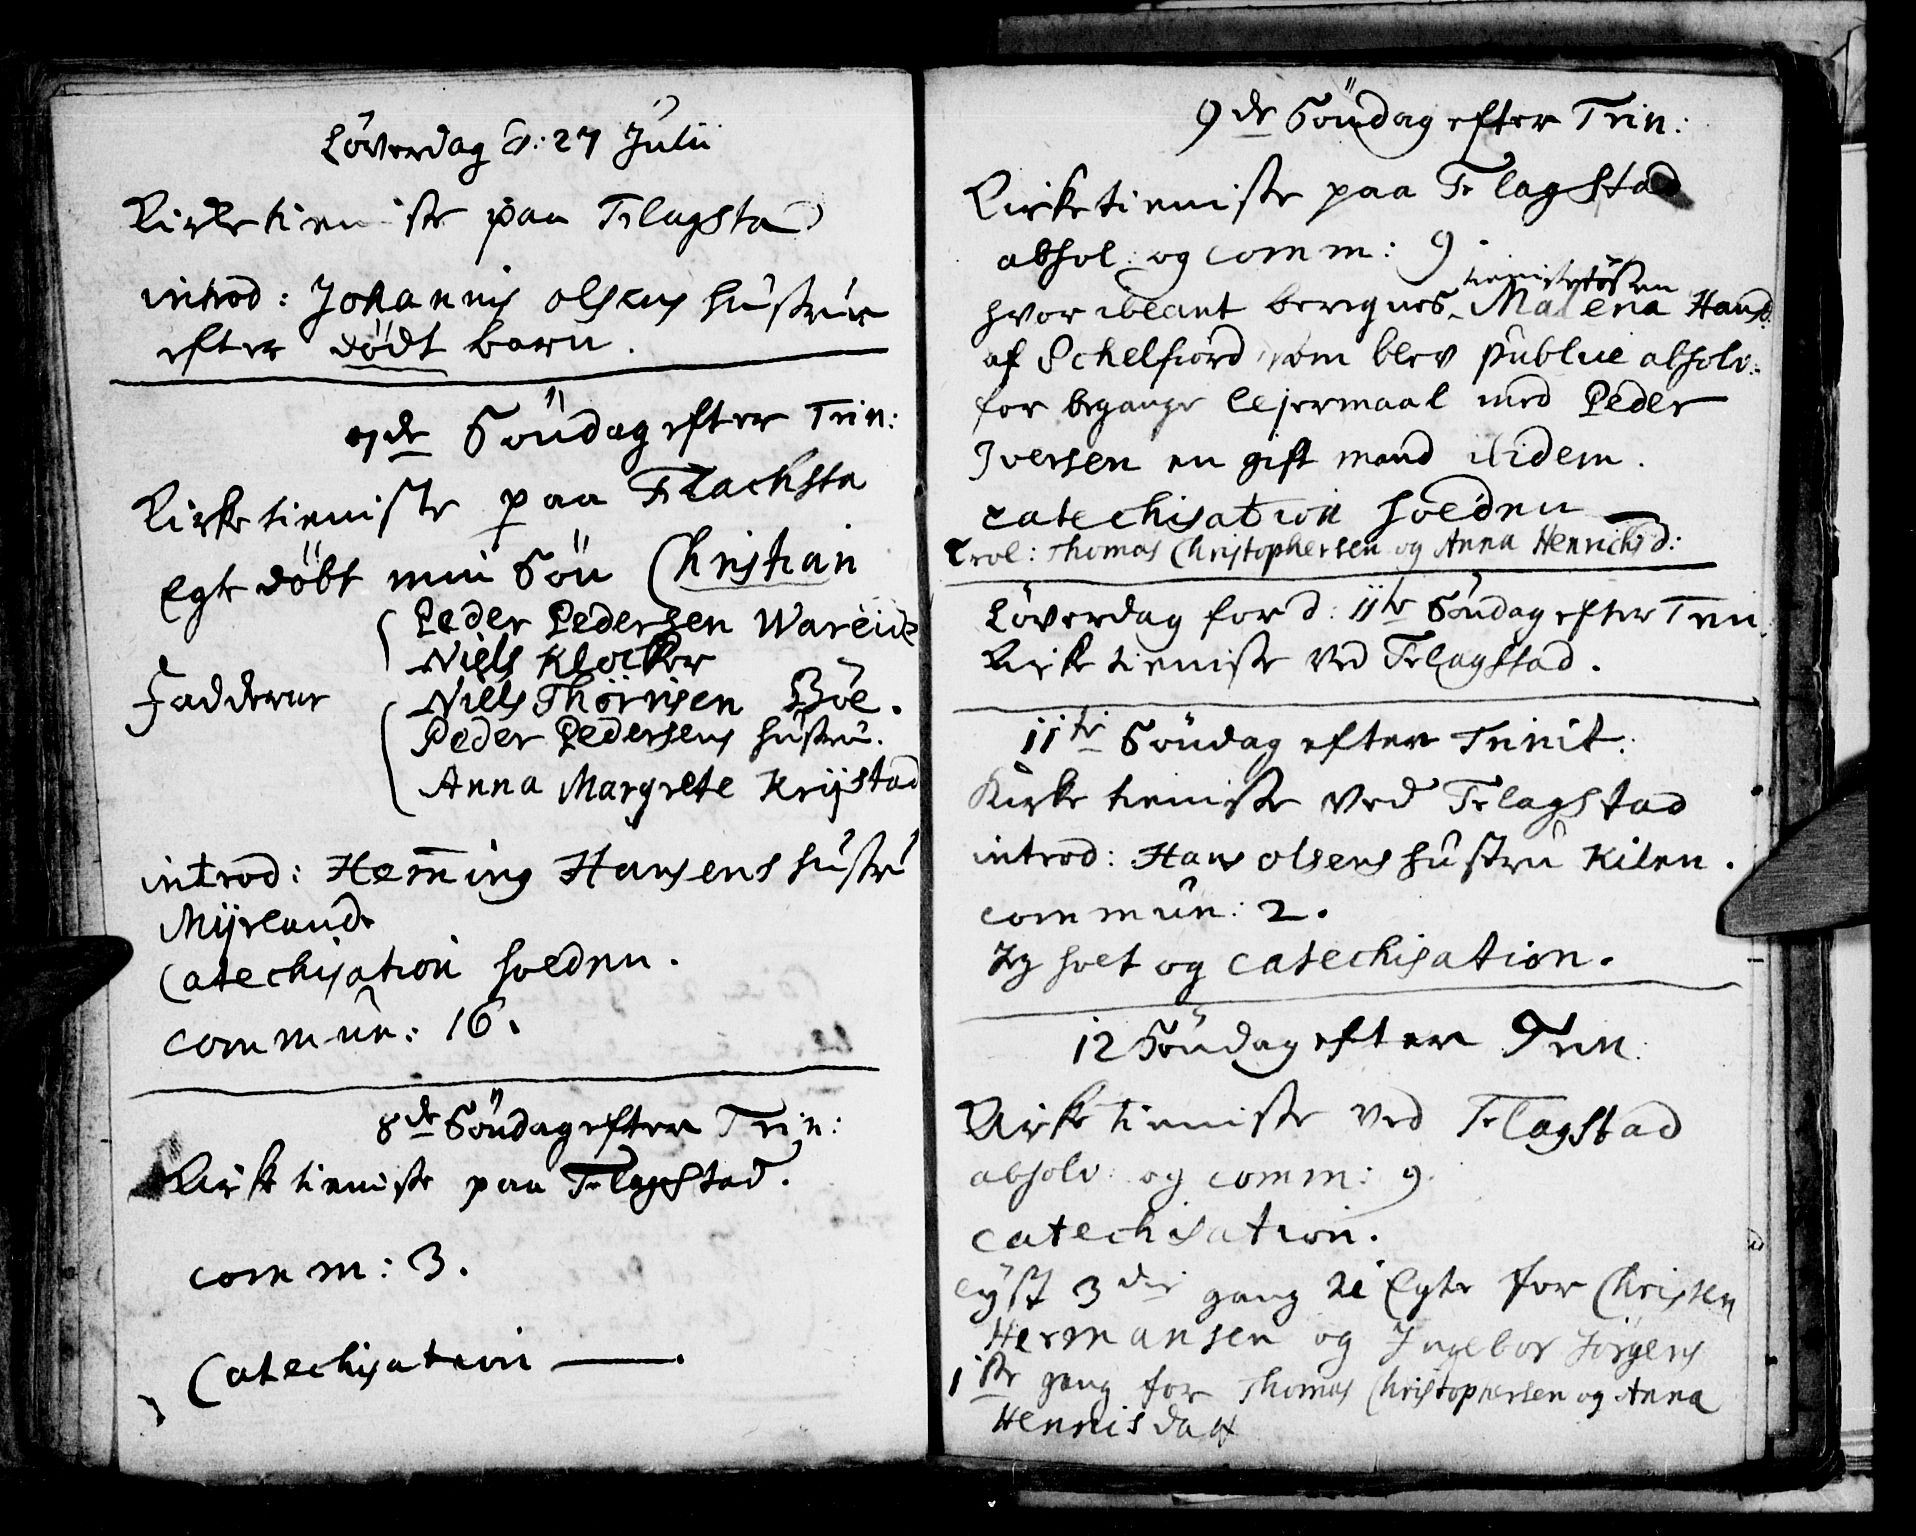 Löverdag d: 27 Julii
Kirketieniste paa Flagsta
introd: Johannis Olsens hustrue
efter dödt barn.
7de Söndag efter Trin:
Kirketieniste paa Flachsta
Egte döbt min Sön Christian
Peder Pedersen Wareide
Niels Klocker
Fadderne Niels Thörrisen Böe.
Peder Pedersens hustru.
Anna Margrete Krijstad
introd: Hem̄ing Hansens hustru
Mijrland
Catechisation holden.
commun: 16.
8de Söndag efter Trin:
Kirketieniste paa Flagstad.
comm: 3.
Catechisation
9de Söndag efter Trin:
Kirketieniste paa Flagstad
absol: og comm: 9.
tienistetösen
hvor iblant beregnes Malena Hansd:
af Schelfiord som blev publice absolv:
for begangne lejermaal med Peder
Iversen en gift mand ibidem.
catechisation holden
Trol: Thomas Christophersen og Anna Henrichsd:
Löverdag for d: 11te Söndag efter Trin:
Kirketieniste ved Flagstad.
11te Söndag efter Trinit:
Kirketieniste ved Flagstad
introd: Hans Olsens hustru Kilen.
commun: 2.
holt og catechisation.
12 Söndag efter Trin:
Kirketieniste ved Flagstad
absolv: og comm: 9.
catechisation.
lyst 3die gang til Egte for Christen
Hermansen og Ingebor Jörgens
1ste gang for Thomas Christophersen og Anna
Hennisdatt